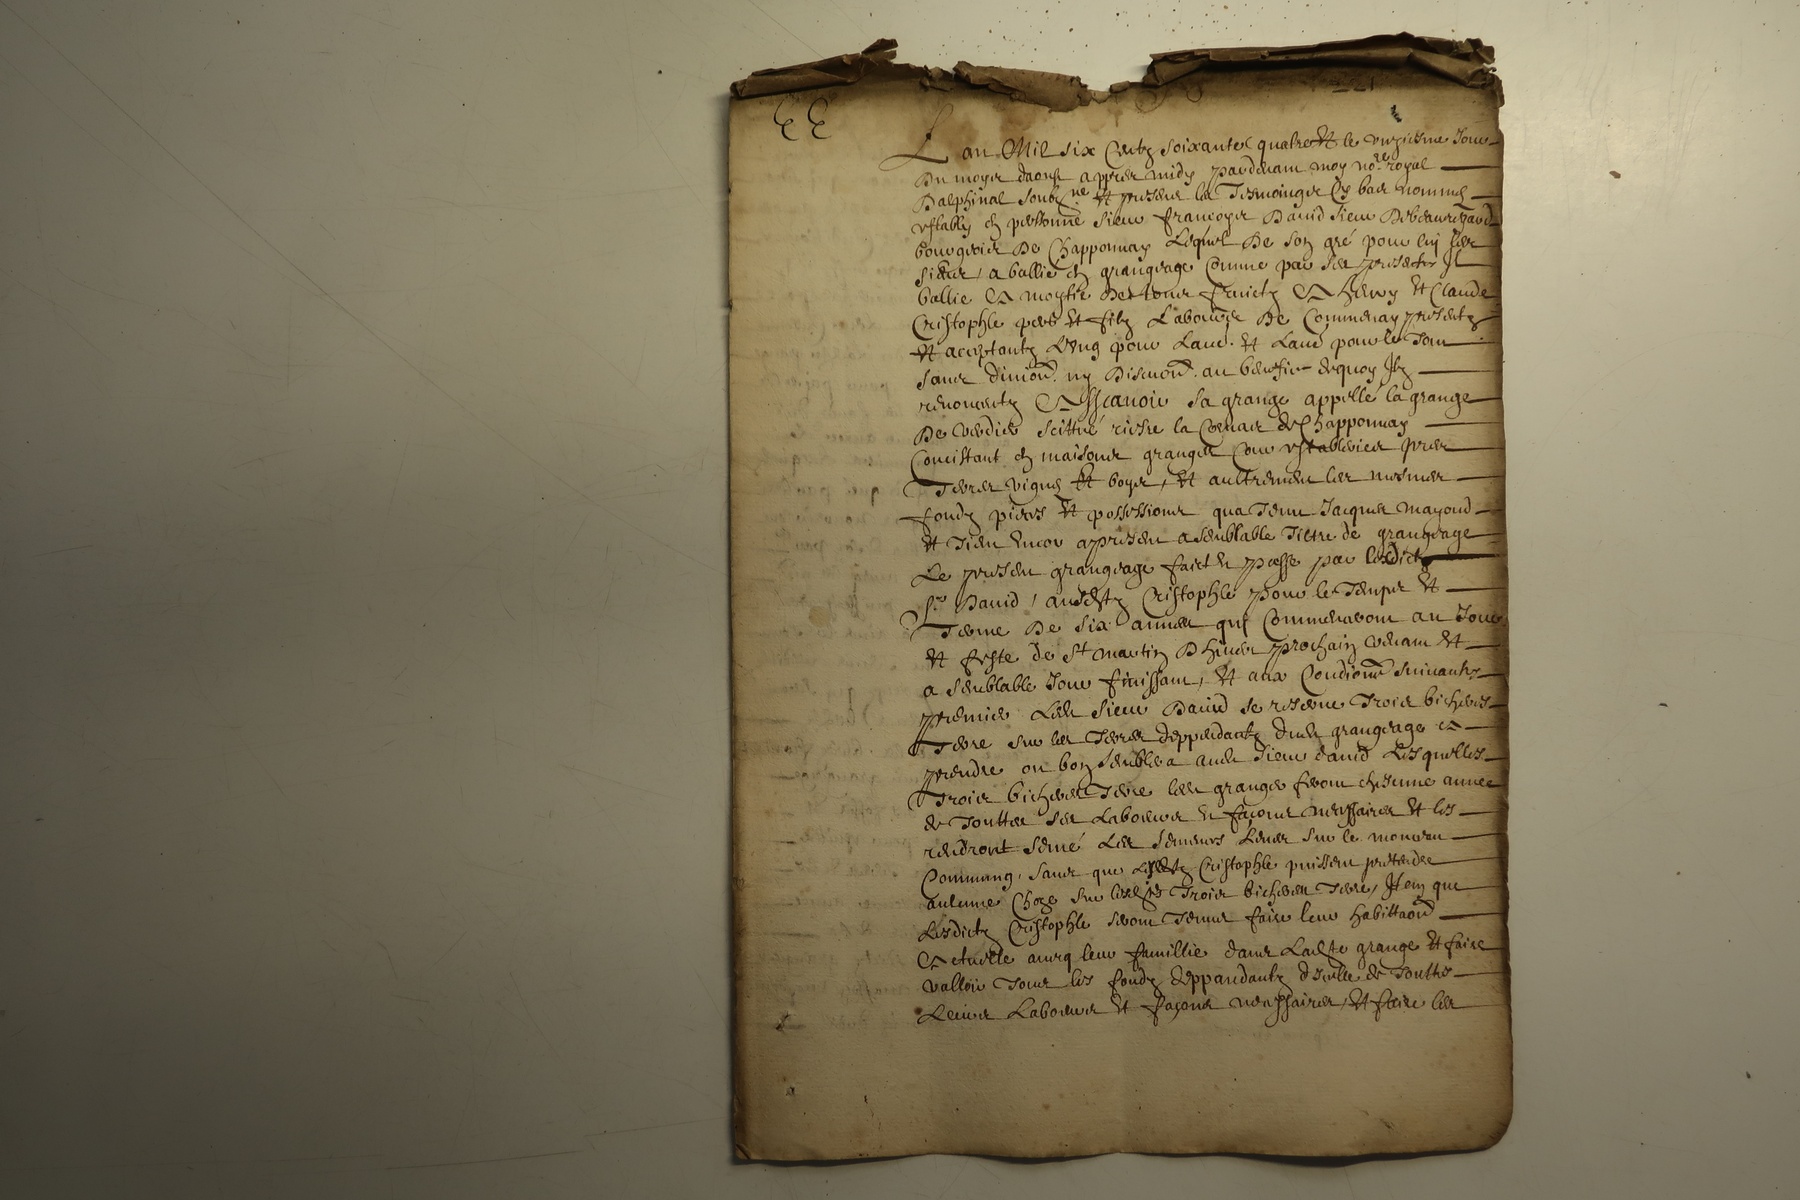 L an Mil six Centz soixante quatre Et le unziesme Jour
Du moys daoust appres midy pardevant moy no.re royal
Dalphinal soubz.ne Et presens les Tesmoings Cy bas nommes
estably en personne sieur francoys David sieur De beauregard
bourgeois De Chapponnay Lequel De son gré pour luy Les
siens, a ballié en grangeage Comme par ses presentes Il
ballie A moytié De tous fruictz A Et Claude
Cristophle pere Et filz Laboureurs De Commenay presentz
Et acceptantz L'ung pour Laut. Et Laut pour le Tout
sans division. ny Discution. au benefice dequoy Ilz
renoncentz A Scavoir sa grange appellé la grange
De scittué riere la Chapponnay
Concistant en maisons granges Cour estableries pres
Terres vignes Et boys, Et aultrement les mesmes
fondz pieces Et possessions qua Tenu Jacques mayoud
Et Tient Encor a present a semblable Tiltre de grangeage
Le present grangeage faict Et passé par lesdict
Sr David, ausdtz Cristophle pour le Temps Et
Terme De six annees qui Commenceront au Jour
Et feste de St martin D hiver prochain venant Et
a semblable Jour finissant, Et aux Conditions suivantes
premier Led sieur David se reserve Trois bicherees
Terre sur les Terres deppendantz dud grangeage A
prendre ou bon semblera aud sieur david Lesquelles
Trois bicherees Terre led granger feront chacune annee
de Touttes ses Laboures Et façons necessaires Et les
rendront semé Les semens Leves sur le monceau
Commung, sans que Lesdtz Cristophle puissent pretendre
aulcune Choze sur lesdtes Trois bicherees Terre, Item que
Lesdictz Cristophle seront Tenus faire leur habittaon
Actuelle avecq leur famillie dans Ladte grange Et faire
valloir Tous les fondz deppandantz dicelle de Touttes
Leurs Laboures Et façons necessaires, Et faire les